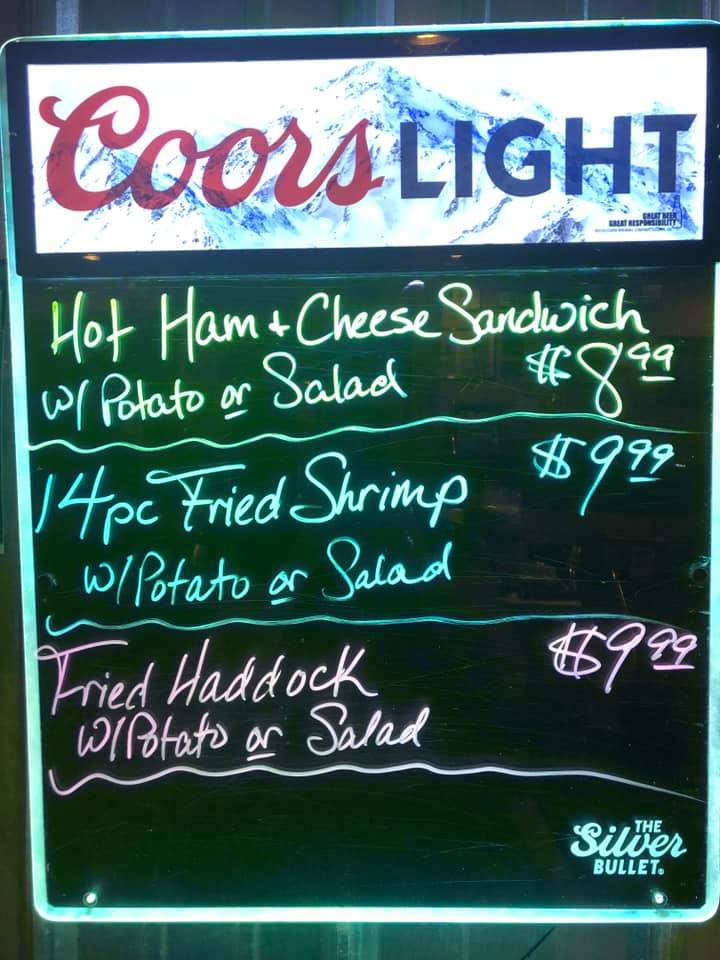 Coors LIGHT
GREAT BEER
GREAT RESPONSIBILITY
Hot Ham & Cheese Sandwich
w/ Potato or Salad $8.99
14pc Fried Shrimp $9.99
w/ Potato or Salad
Fried Haddock $9.99
w/ Potato or Salad
THE
Silver
BULLET.